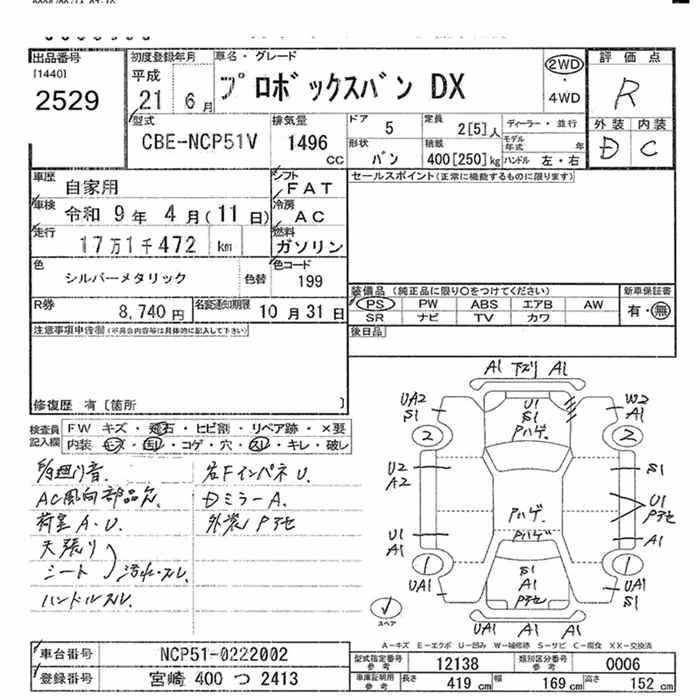 出品番号
[1440]
2529
初度登録年月
平成
21 6月
車名・グレード
プロボックスバン DX
2WD
・
4WD
評価点
R
外装 内装
D C
型式
CBE-NCP51V
排気量
1496
CC
ドア
5
定員
2[5]人
ディーラー・並行
モデル年式 年
形状
バン
積載
400[250]kg
ハンドル 左・右
車歴
自家用
シフト
FAT
セールスポイント(正常に機能するものに限ります)
車検
令和 9年 4月(11日)
冷房
AC
走行
17万1千472 km
燃料
ガソリン
色
シルバーメタリック
色替
色コード
199
装備品 (純正品に限り○をつけてください)
PS PW ABS エアB AW
SR ナビ TV カワ
新車保証書
有・無
R券
8,740円
名変通知期限
10月31日
後日品
注意事項申告欄(不具合内容等は具体的に記入して下さい)
修復歴 有〔箇所 〕
検査員記入欄
FW キズ・飛石・ヒビ割・リペア跡・×要
内装 キズ・凹・コゲ・穴・スレ・キレ・破レ
AC風向部品欠
荷室A.U.
天張り
シート
汚れ・スレ
ハンドルスレ.
右FインパネU.
DミラーA.
外装Pアセ
A1 下ズリ A1
UA2
S1
U1
S1
Pハゲ.
W2
A1
2
2
U2
A2
S1
U1
Pアセ
Pハゲ.
Pハゲ
U1
A1
A1
1
1
UA1
S1
A1
Pアセ
UA1
UA1 A1 S1
スペア
A−キズ E−エクボ U−凹み W−補修跡 S−サビ C−腐食 XX−交換済
車台番号
NCP51-0222002
型式指定番号
参考
12138
類別区分番号
参考
0006
登録番号
宮崎 400 つ 2413
車庫証明用
参考
長さ 419 cm
幅 169 cm
高さ 152 cm